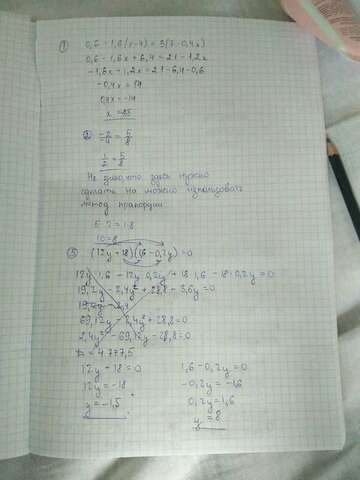 ① 0,6 - 1,6(x-4) = 3(7-0,4x)
0,6 - 1,6x + 6,4 = 21 - 1,2x
-1,6x + 1,2x = 21 - 6,4 - 0,6
-0,4x = 14
0,4x = -14
x = 35
②
1/2 = 5/8
Не знаю, что здесь нужно
сделать. Но можно использовать
метод пропорции.
5·2 = 1·8
10 = 8
(12y + 18)(1,6 - 0,2y) = 0
12y·1,6 - 12y·0,2y + 18·1,6 - 18·0,2y = 0
19,2y - 2,4y² + 28,8 - 3,6y = 0
69,12y - 2,4y² + 28,8 = 0
2,4y² - 69,12y - 28,8 = 0
D = 4.777,5
12y + 18 = 0
12y = -18
y = -1,5
1,6 - 0,2y = 0
-0,2y = -1,6
0,2y = 1,6
y = 8